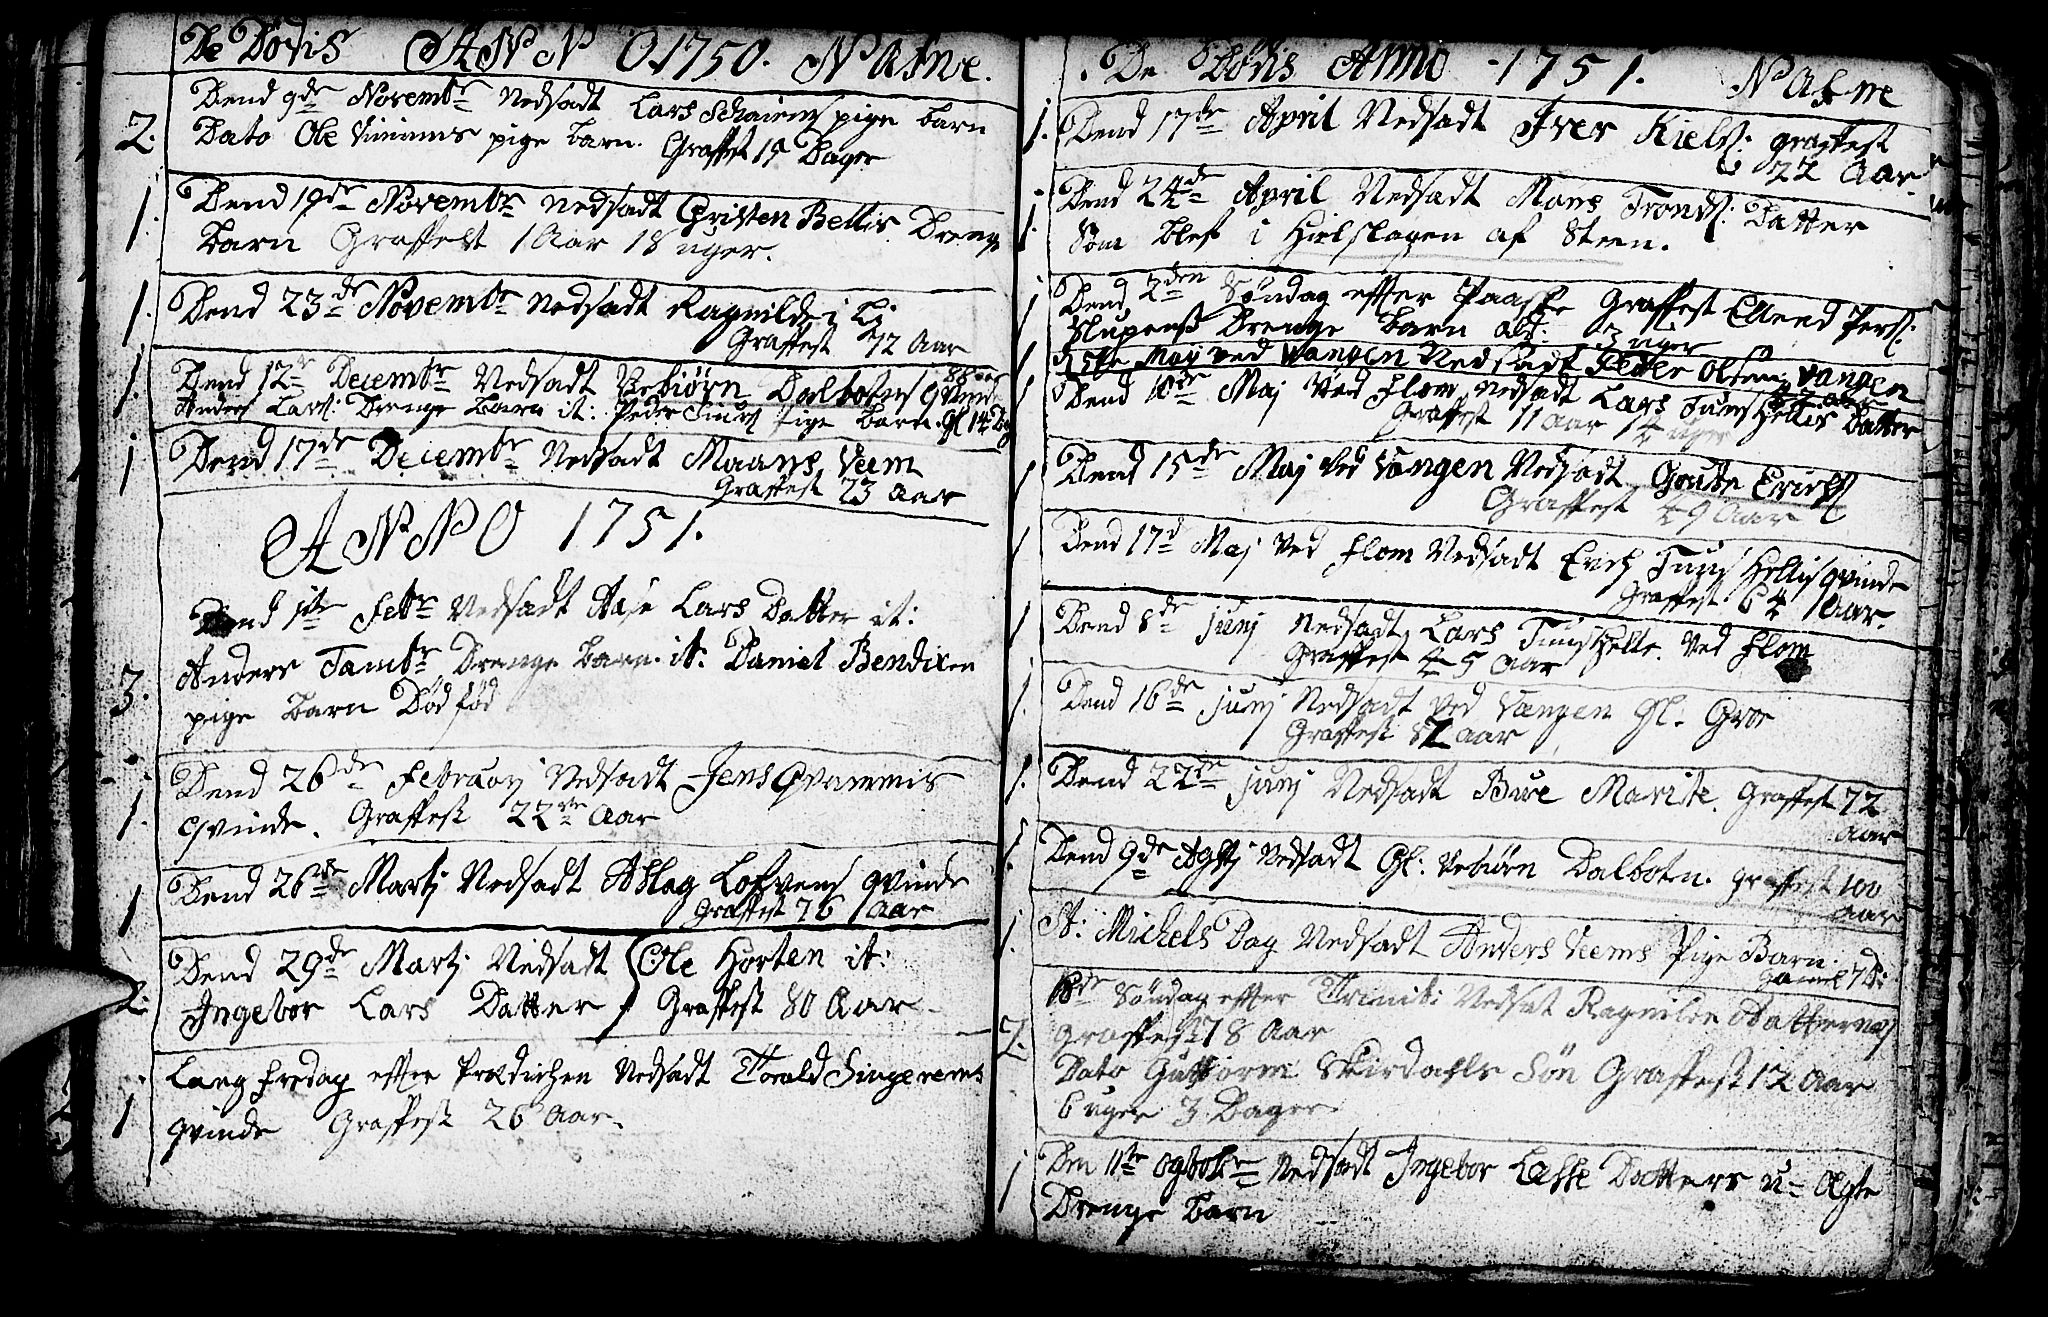 De Dödis ANNO 1750. NAfne.
Dend 9de Novembr Nedsadt Lars pige barn
2. Dato Ole pige barn. Graffest 15 Dager
Dend 19de Novembr nedsadt Christen Bellis Drenge
1. barn Graffest 1 Aar 18 uger.
1. Dend 23de Novembr Nedsadt Ragnilde i Li
Graffest 72 Aar
1. Dend 12te Decembr Nedsadt Vebiörn Dalbotens qvinde 88
Anders Lars: Drenge barn it: Peder pige barn. gl 14 Dag
1 Dend 17de Decembr Nedsadt Maans Veem
Graffest 23 Aar
ANNO 1751.
Dend 1ste Febr Nedsadt Aase Lars Datter it:
Anders Tambr Drenge barn. it. Daniel Bendixen
3. pige barn Död föd
Dend 26de Februarj Nedsadt Jens Gvammis
1. qvinde. Graffest 22 Aar
Dend 26de Martj Nedsadt Aslag Lofvens qvinde
1 Graffest 76 Aar
Dend 29de Martj Nedsadt Ole Horten it:
2. Ingebor Lars Datter Graffest 80 Aar
Lang Fredag effter Prædichen Nedsadt Torald
1 qvinde Graffest 26 Aar.
De Dödis Anno 1751. NAfne
1. Dend 17de April Nedsadt Iver Kiels: graffest
22 Aar.
Dend 24de April Nedsadt Mons Tronds: Datter
1. Som blef i Hielslagen af Steen.
1 Dend 2den Söndag effter Paaske Graffest Ellend Pers:
Drenge barn alt: 3 uger
1 Maij ved Vangen Nedsadt Peder Olsen Vangen
1 Dend 10de Maj Ved Flom nedsadt Lars Tuns Hellis Datter
Graffest 11 Aar 14 uger
1 Dend 15de Maj Ved Vangen Nedsadt Erichs
Graffest 49 Aar
1 Dend 17d Maj Ved Flom Nedsadt Erich Tuns Hellis qvinde
Graffest 64 Aar.
1 Dend 8de Junj Nedsadt Lars Tuns Helle. Ved Flom
Graffest 45 Aar
1. Dend 16de Junj Nedsadt Ved Vangen Gl. Gvor
Graffest 82 Aar
1. Dend 22de Junj Nedsadt Marite. Graffest 72
Aar
1. Dend 9de Agstj Nedsadt Gl: Vebiörn Dalboten. graffest 100
Aar
1. St: Michels Dag Nedsadt Anders Veems Pige Barn.
gamel 7 D:
18de Söndag effter Trinit: Nedsat Ragnilde
2. graffest 78 Aar
Dato Guttorm Skirdahls Sön Graffest 12 Aar
6 uger 3 Dager
1 Den 11te Nedsadt Ingebor Lasse Datters u-ægte
Drenge barn